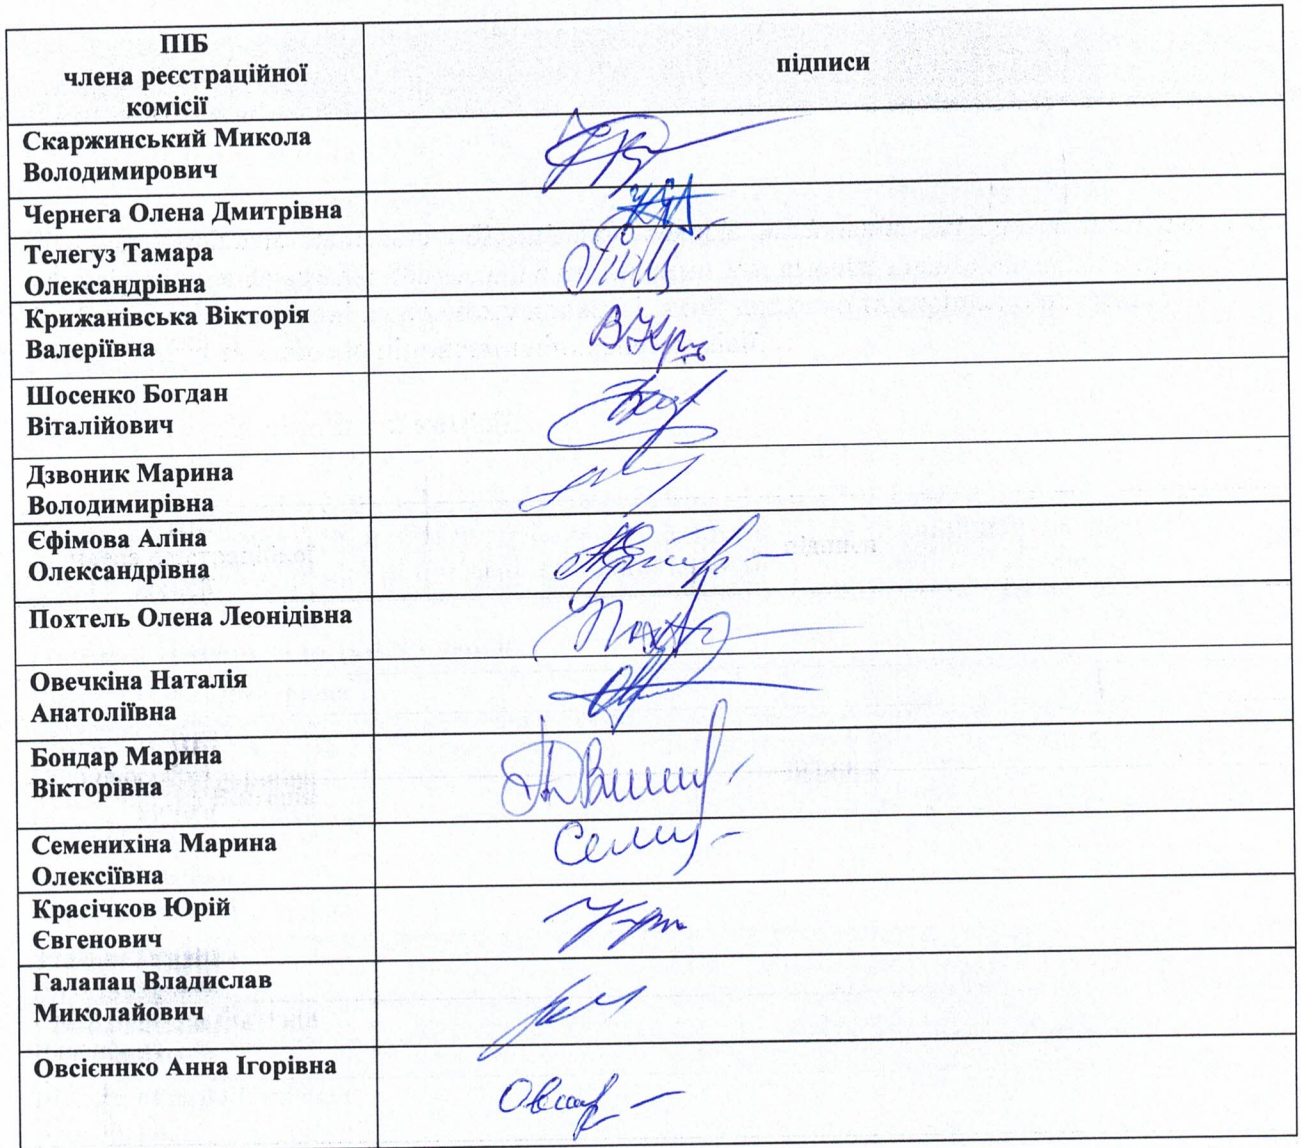 ПІБ
члена реєстраційної
комісії
підписи
Скаржинський Микола
Володимирович
Чернега Олена Дмитрівна
Телегуз Тамара
Олександрівна
Крижанівська Вікторія
Валеріївна
Шосенко Богдан
Віталійович
Дзвоник Марина
Володимирівна
Єфімова Аліна
Олександрівна
Похтель Олена Леонідівна
Овечкіна Наталія
Анатоліївна
Бондар Марина
Вікторівна
Семенихіна Марина
Олексіївна
Красічков Юрій
Євгенович
Галапац Владислав
Миколайович
Овсієннко Анна Ігорівна